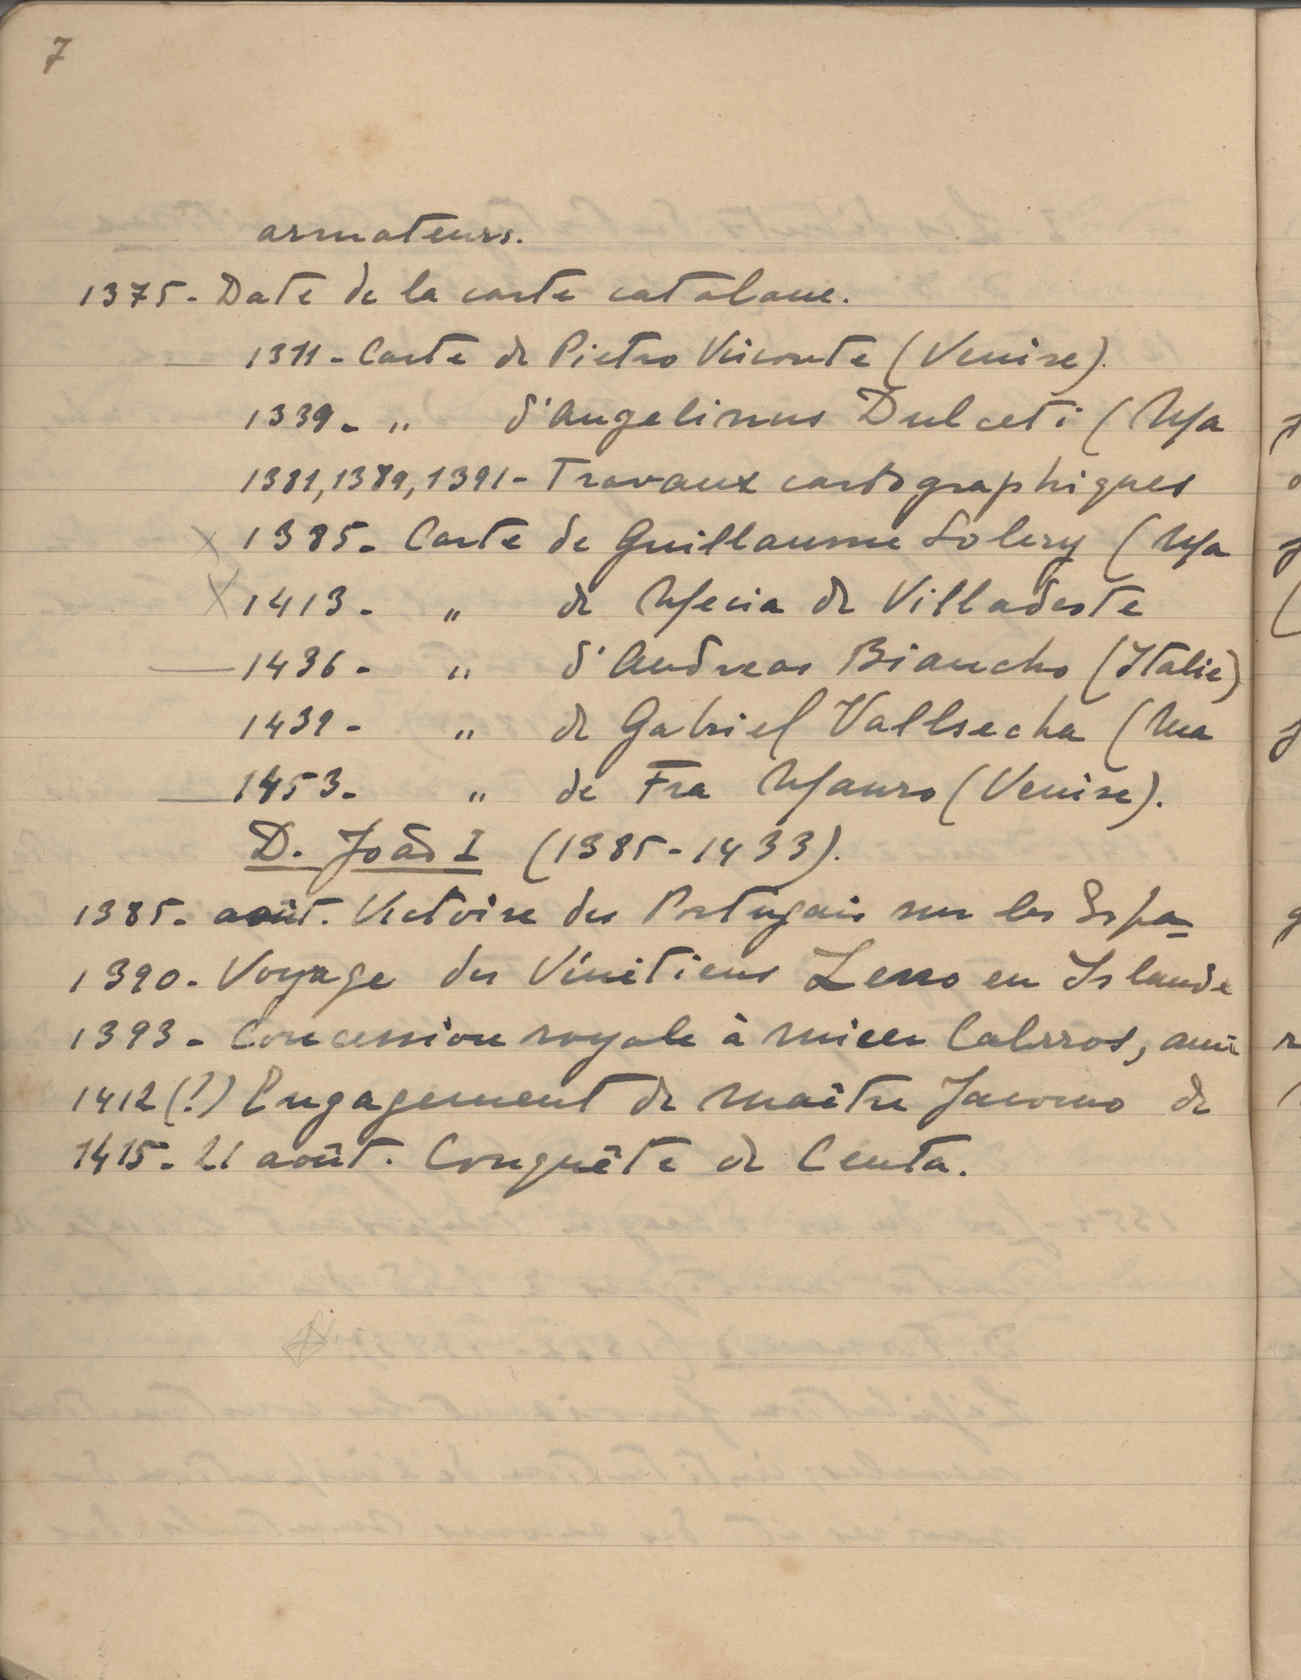 7
armateurs.
1375. Date de la carte catalane.
1311. Carte de Pietro Visconte (Venise).
1339. „ d'Angelinus Dulceti (Ma
1381, 1389, 1391 - Travaux cartographiques
1385. Carte de Guillaume Solery (Ma
1413. „ de Mecia de Villadeste
1436. „ d'Andreas Biancho (Italie)
1439. „ de Gabriel Vallsecha (Ma
1453. „ de Fra Mauro (Venise).
D. João I (1385-1433).
1385. août. Victoire des Portugais sur les Espa
1390. Voyage des Vénitiens Zeno en Islande
1393. Concession royale à micer
1412 (?) Engagement de maître Jacomo de
1415. 21 août. Conquête de Ceuta.